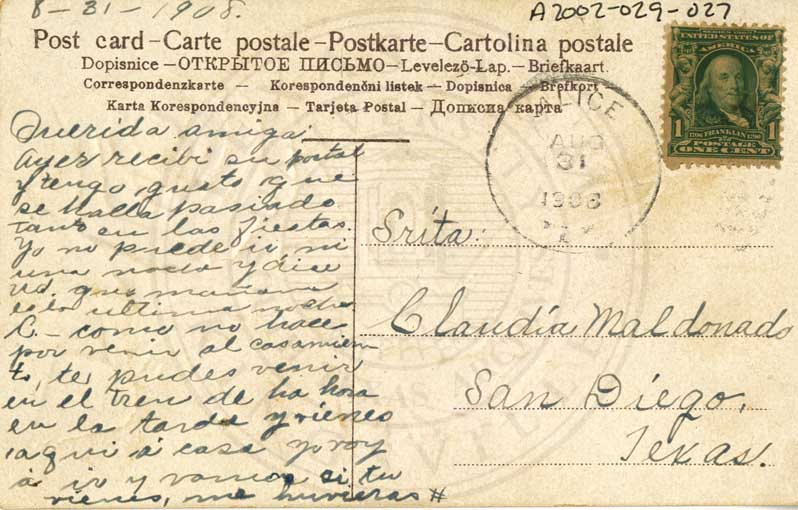 8-31-1908.
A2002-029-027
Post card–Carte postale–Postkarte–Cartolina postale
Dopisnice–ОТКРЫТОЕ ПИСЬМО–Levelező-Lap.–Briefkaart.
Correspondenzkarte – Korespondenční listek – Dopisnica – Brefkort
Karta Korespondencyjna – Tarjeta Postal – Дописна карта
UNITED STATES OF AMERICA
1 1706 FRANKLIN 1790 1
POSTAGE
ONE CENT
ALICE
AUG
31
1908
TEX
Querida amiga:
Ayer recibi su postal
y tengo gusto que
se halla pasiado
tanto en las fiestas.
Yo no pude ir ni
una noche y dice
Ud. que mañana
es la ultima noche
C– como no hace
por venir al casamien
to, te pudes venir
en el tren de ha hora
en la tarde y vienes
aqui á casa yo voy
á ir y vamos si tu
vienes, me huvieras #
Srita:
Claudia Maldonado
San Diego,
Texas.